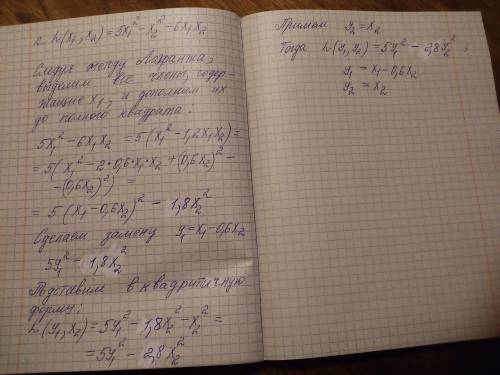 2. L(x₁, x₂) = 5x₁² - x₂² - 6x₁x₂
Следуя методу Лагранжа,
выделим все члены, содер-
жащие x₁, и дополним их
до полного квадрата:
5x₁² - 6x₁x₂ = 5(x₁² - 1,2x₁x₂) =
= 5(x₁² - 2·0,6·x₁·x₂ + (0,6x₂)² -
- (0,6x₂)²) =
= 5(x₁ - 0,6x₂)² - 1,8x₂²
Сделаем замену y₁ = x₁ - 0,6x₂
5y₁² - 1,8x₂²
Подставим в квадратичную
форму:
L(y₁, x₂) = 5y₁² - 1,8x₂² - x₂² =
= 5y₁² - 2,8x₂²
Примем y₂ = x₂
Тогда L(y₁, y₂) = 5y₁² - 2,8y₂²,
y₁ = x₁ - 0,6x₂
y₂ = x₂